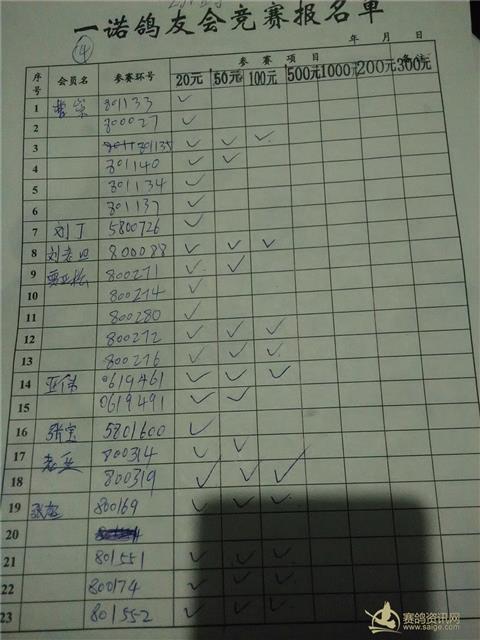 一诺鸽友会竞赛报名单
④ 年 月 日
序号 会员名 参赛环号 参赛项目 备注
20元 50元 100元 500元 1000元 200元 300元
1 801133 ✓
2 800027 ✓
3 801135 ✓ ✓ ✓
4 801140 ✓ ✓
5 801134 ✓
6 801137 ✓
7 刘丁 5800726 ✓
8 刘老四 800088 ✓ ✓ ✓
9 贾亚松 800271 ✓ ✓
10 800274 ✓
11 800280 ✓
12 800272 ✓ ✓ ✓
13 800276 ✓ ✓ ✓
14 亚伟 0619461 ✓ ✓ ✓
15 0619491 ✓ ✓
16 张宝 5801600 ✓
17 老亚 800314 ✓ ✓
18 800319 ✓ ✓ ✓
19 800169 ✓ ✓ ✓
20
21 801551 ✓ ✓ ✓
22 800174 ✓ ✓ ✓
23 801552 ✓ ✓ ✓
赛鸽资讯网
www.saige.com